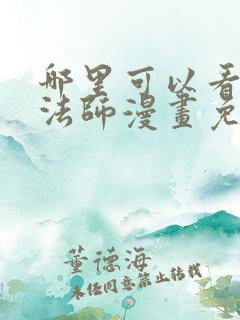 哪里可以看
法师漫畫免
董德海
未经同意禁止转载